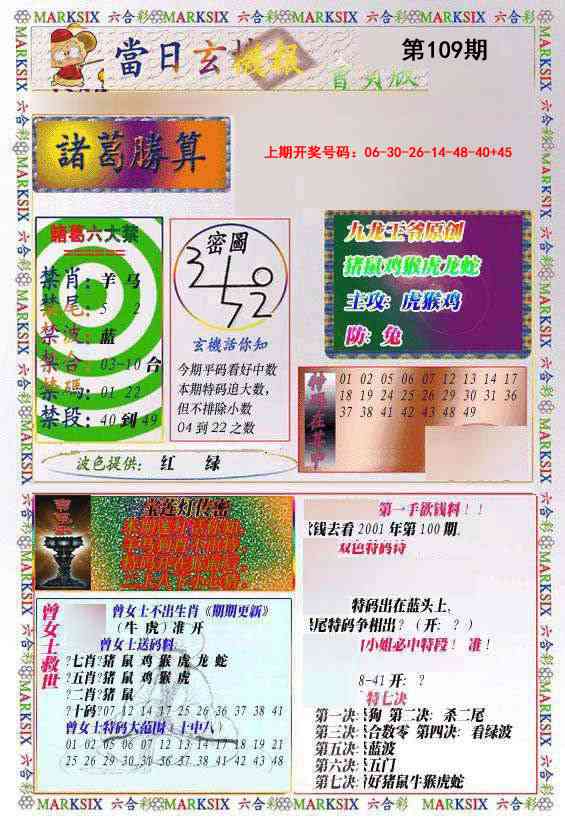 MARKSIX 六合彩 MARKSIX 六合彩 MARKSIX 六合彩 MARKSIX
當日玄機報
第109期
諸葛勝算
上期开奖号码：06-30-26-14-48-40+45
諸葛六大禁
禁肖：羊 马
禁尾：5 2
禁波：蓝
禁合：03-10 合
禁碼：01 22
禁段：40 到 49
密圖
玄機話你知
今期平码看好中数
本期特码追大数，
但不排除小数
04 到 22 之数
九龙王爷原创
猪鼠鸡猴虎龙蛇
主攻：虎猴鸡
防：兔
01 02 05 06 07 12 13 14 17
18 19 24 25 26 29 30 31 36
37 38 41 42 43 48 49
波色提供： 红 绿
宝莲灯传密
曾女士救世
曾女士不出生肖《期期更新》
（牛 虎）准 开
曾女士送码料:
?七肖?猪 鼠 鸡 猴 虎 龙 蛇
?五肖?猪 鼠 鸡 猴 虎
?二肖?猪 鼠
?十码?07 12 14 17 25 26 36 37 38 41
曾女士特码大范围（十中八）
01 02 05 06 07 12 13 14 17 18 19 21
25 26 29 30 31 36 37 38 41 42 43 48
第一手欲钱料！！
钱去看 2001 年第 100 期.
双色特码诗
特码出在蓝头上、
尾特码争相出？（开：？）
小姐必中特段！ 准！
8-41 开：?
特七决
第一决:杀狗 第二决: 杀二尾
第三决:杀合数零 第四决: 看绿波
第五决:杀蓝波
第六决:杀五门
第七决:看好猪鼠牛猴虎蛇
MARKSIX 六合彩 MARKSIX 六合彩 MARKSIX 六合彩 MARKSIX 六合彩